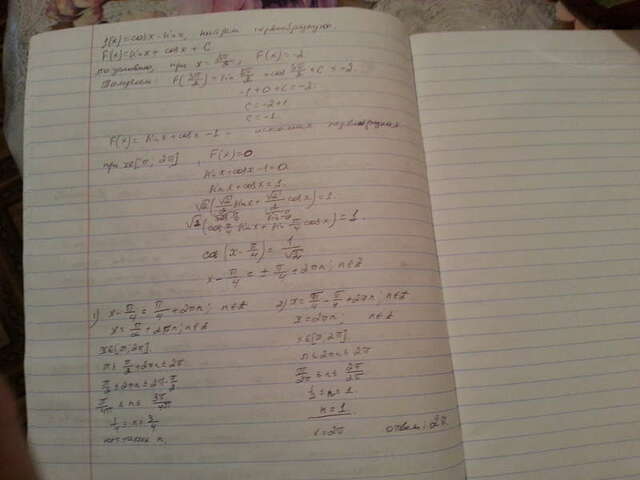 f(x)=cosx-sinx, найдём первообразную
F(x)=sinx+cosx+C
по условию, при x=3π/2, F(x)=-2
Получаем: F(3π/2)=sin 3π/2 + cos 3π/2 + C = -2
-1+0+C=-2
C=-2+1
C=-1
F(x)=sinx+cosx-1 - искомая первообразная
при x∈[π, 2π], F(x)=0
sinx+cosx-1=0
sinx+cosx=1.
√2(√2/2 sinx+√2/2 cosx)=1
√2(cos π/4 sinx+sin π/4 cosx)=1.
cos(x-π/4)=1/√2
x-π/4=±π/4+2πn; n∈Z
1) x-π/4=π/4+2πn; n∈Z
x=π/2+2πn; n∈Z
x∈[π;2π]
π≤π/2+2πn≤2π
π/2≤2πn≤2π-π/2
π/4π≤n≤3π/4π
1/4≤n≤3/4
нет таких n.
2) x=π/4-π/4+2πn; n∈Z
x=2πn; n∈Z
x∈[π;2π]
π≤2πn≤2π
π/2π≤n≤2π/2π
1/2≤n≤1.
n=1
x=2π
ответ: 2π